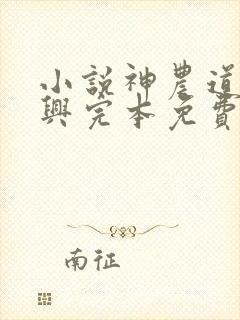 小説神農道
興完本免費
南征